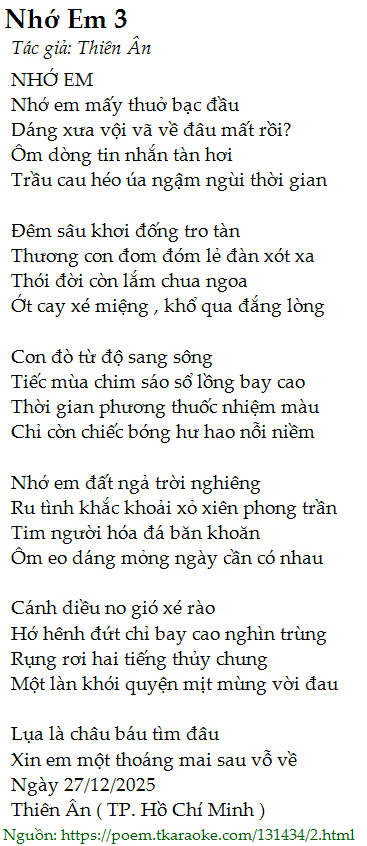 Nhớ Em 3
Tác giả: Thiên Ân
NHỚ EM
Nhớ em mấy thuở bạc đầu
Dáng xưa vội vã về đâu mất rồi?
Ôm dòng tin nhắn tàn hơi
Trầu cau héo úa ngậm ngùi thời gian

Đêm sâu khơi đống tro tàn
Thương con đom đóm lẻ đàn xót xa
Thói đời còn lắm chua ngoa
Ớt cay xé miệng , khổ qua đắng lòng

Con đò từ độ sang sông
Tiếc mùa chim sáo sổ lồng bay cao
Thời gian phương thuốc nhiệm màu
Chỉ còn chiếc bóng hư hao nỗi niềm

Nhớ em đất ngả trời nghiêng
Ru tình khắc khoải xỏ xiên phong trần
Tim người hóa đá băn khoăn
Ôm eo dáng mỏng ngày cần có nhau

Cánh diều no gió xé rào
Hớ hênh đứt chỉ bay cao nghìn trùng
Rụng rơi hai tiếng thủy chung
Một làn khói quyện mịt mùng vời đau

Lụa là châu báu tìm đâu
Xin em một thoáng mai sau vỗ về
Ngày 27/12/2025
Thiên Ân ( TP. Hồ Chí Minh )
Nguồn: https://poem.tkaraoke.com/131434/2.html